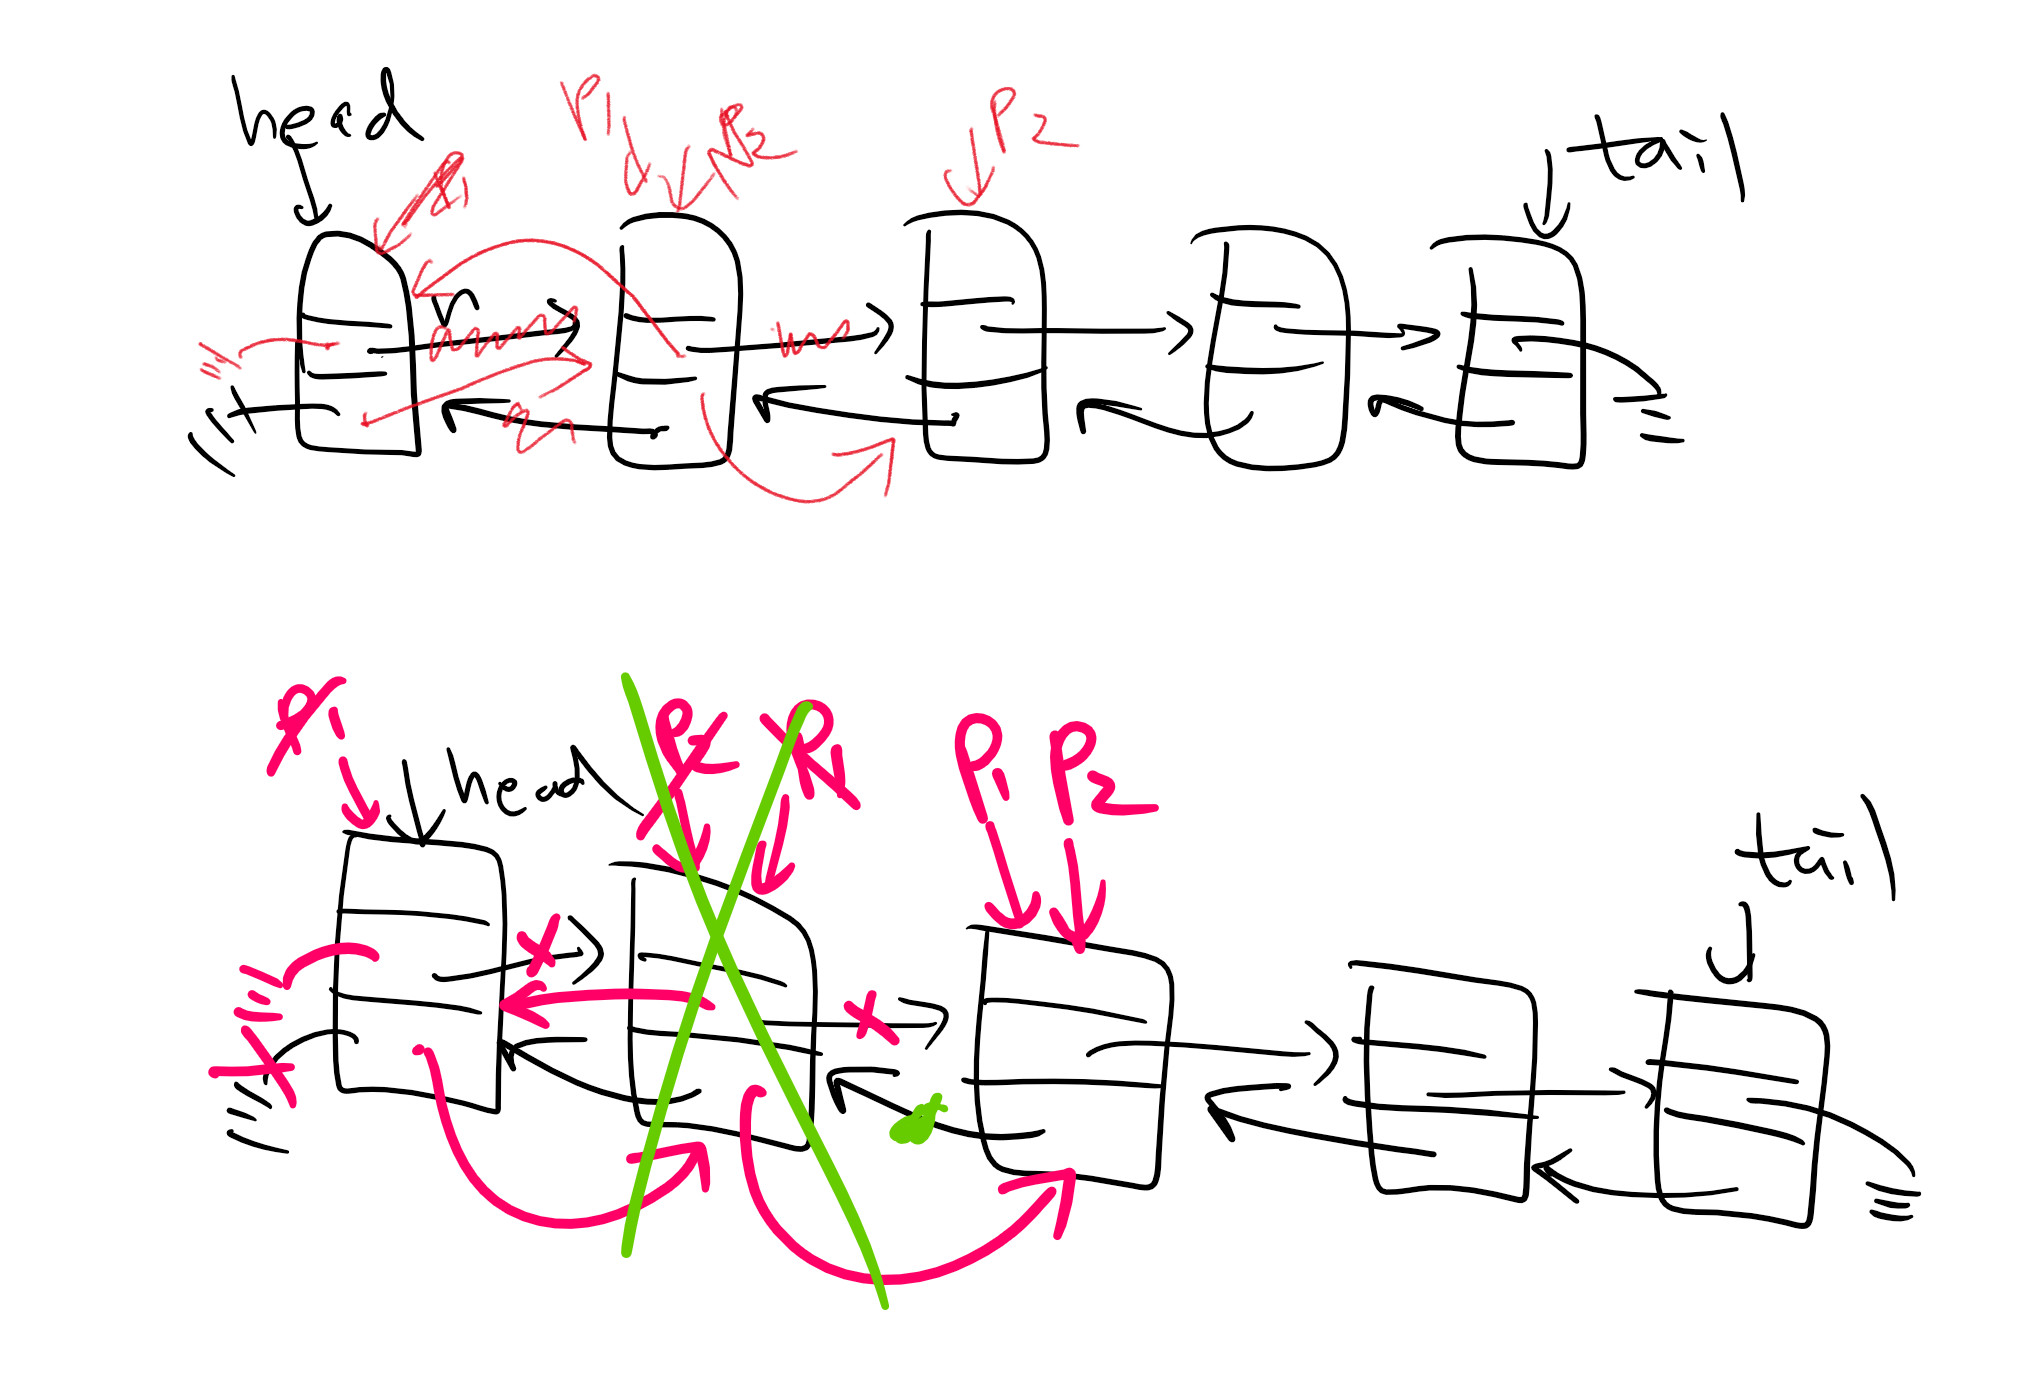 head
P1
P2
P2
tail
P1
P1
head
P2
P1
P1
P2
tail